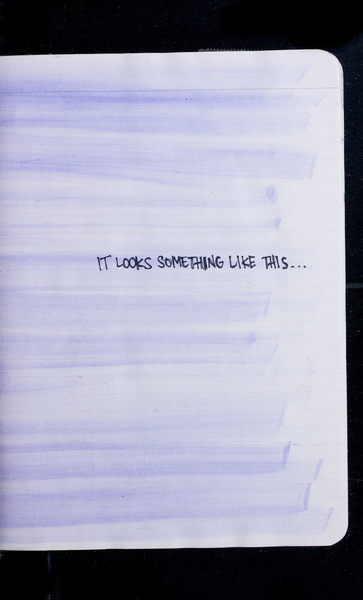 IT LOOKS SOMETHING LIKE THIS...